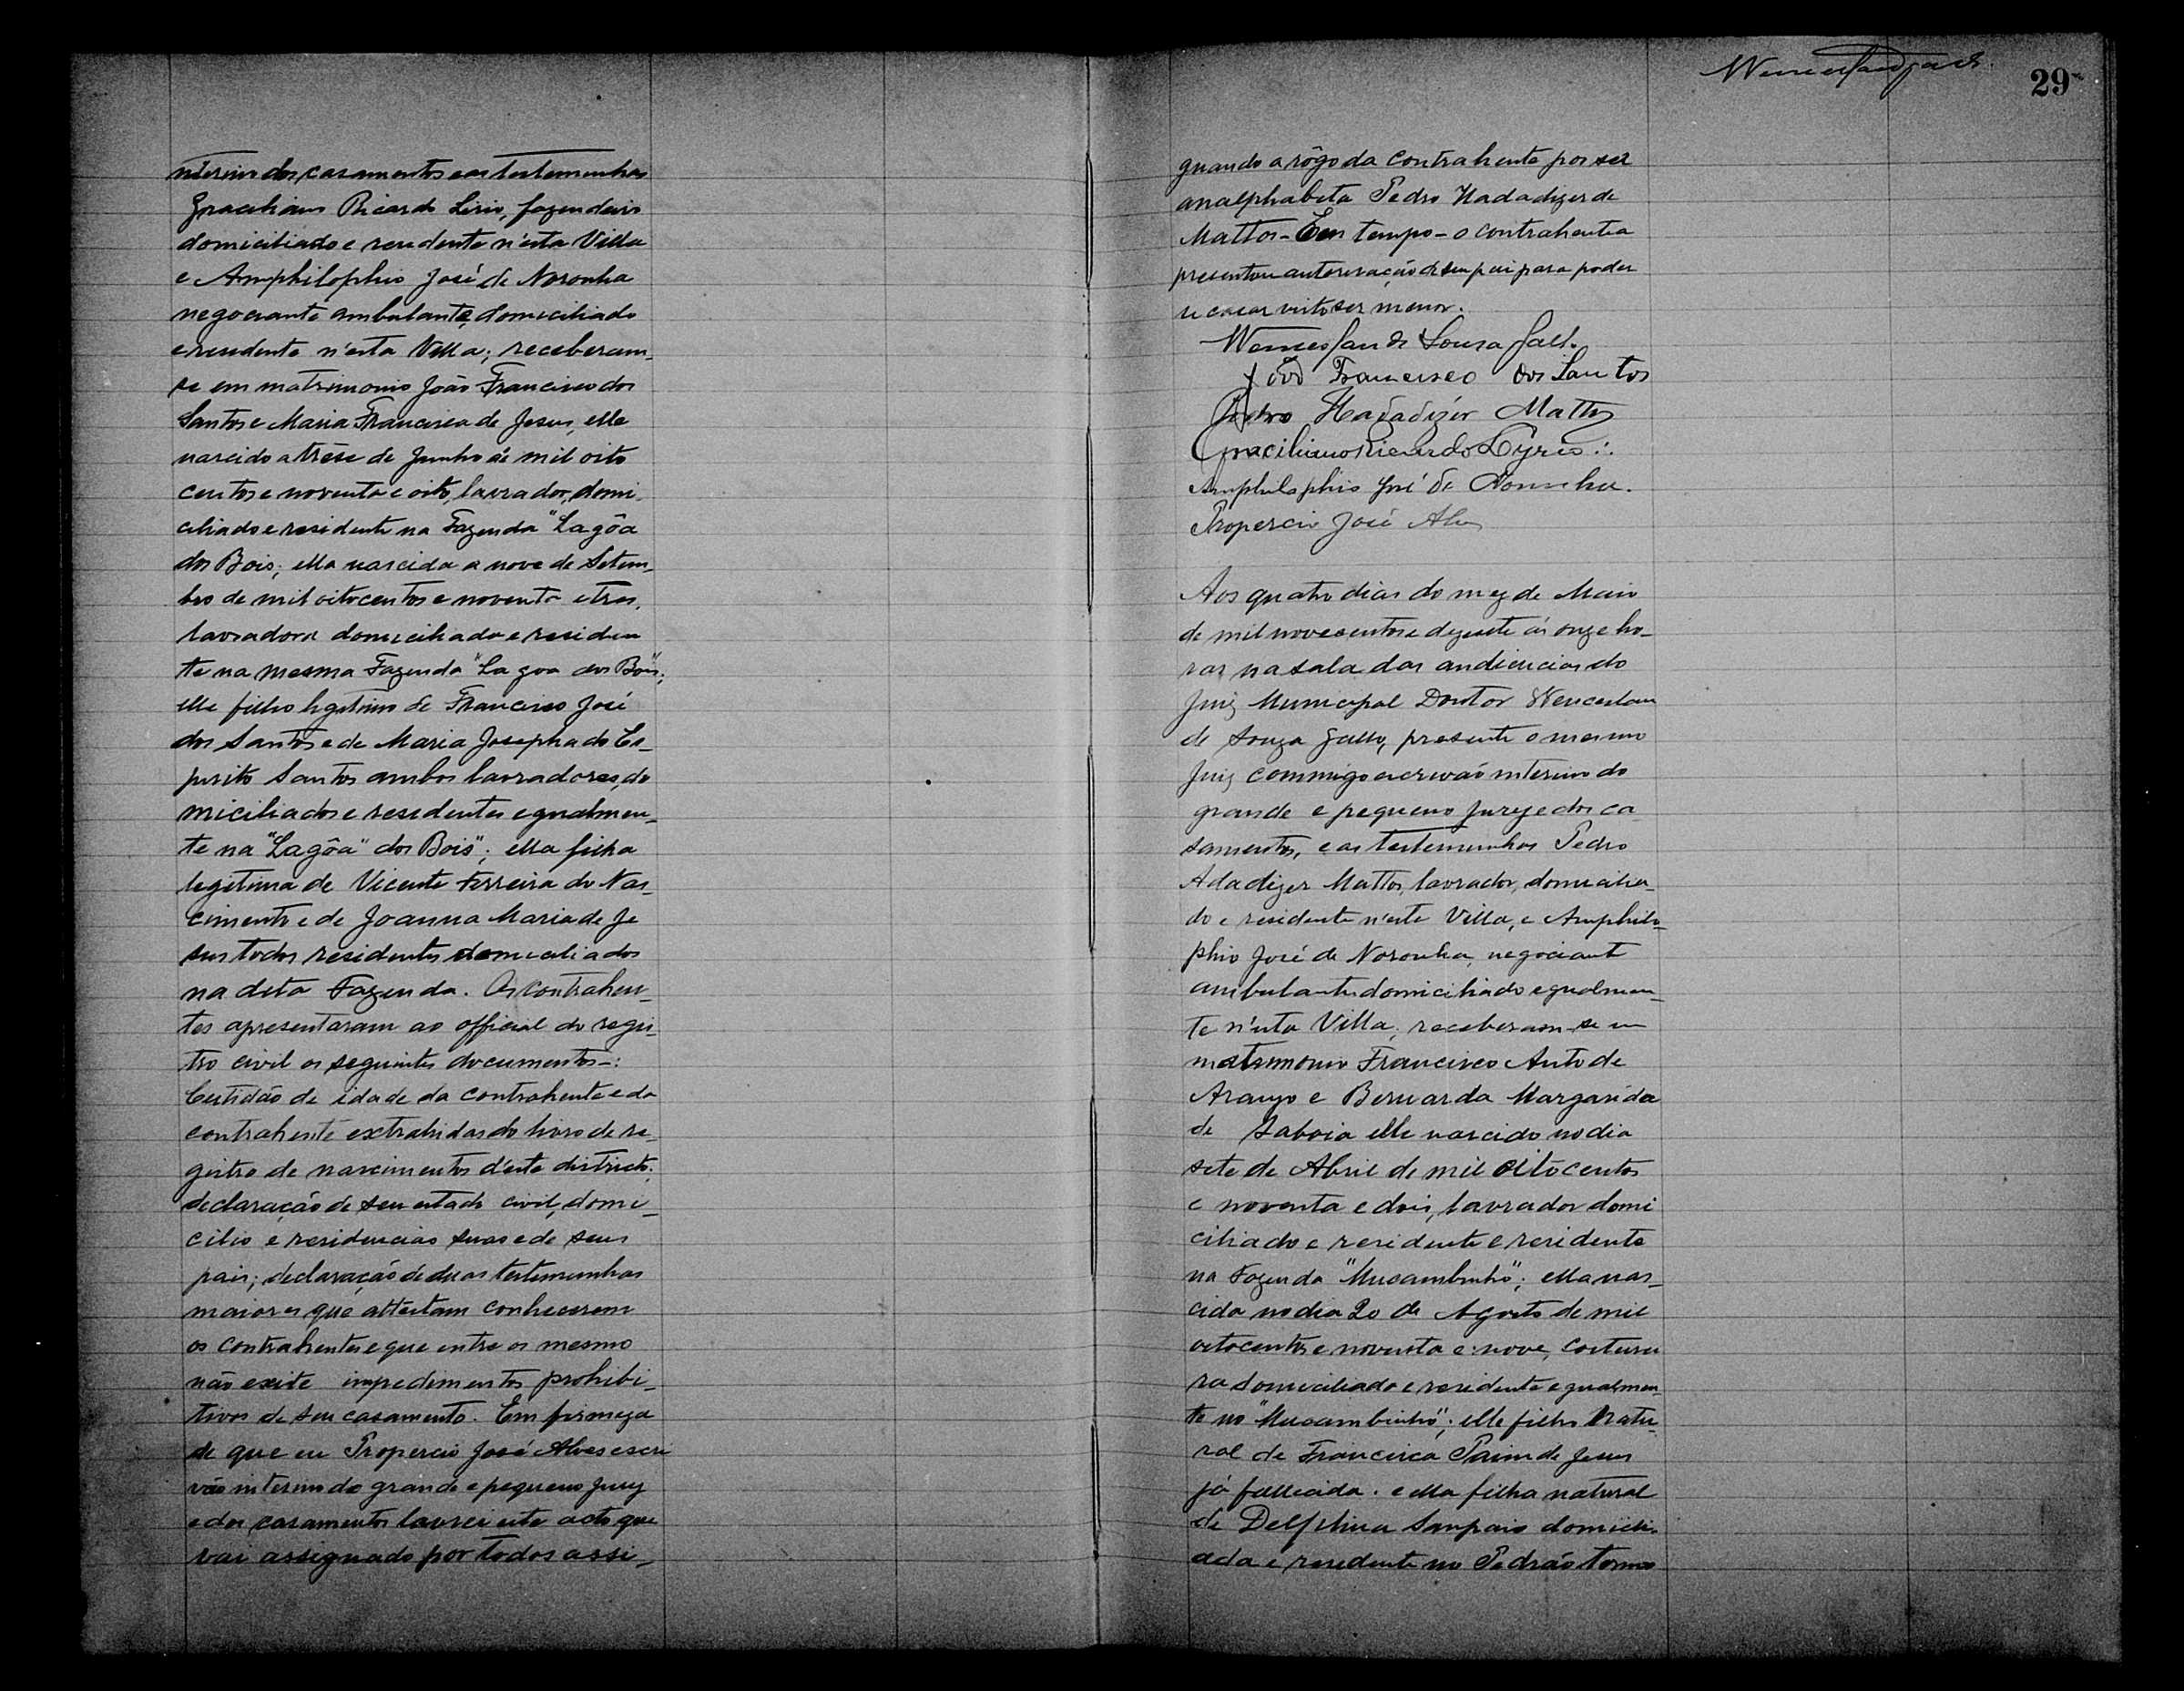 nterino dos casamentos e as testemunhas
Graciliano Ricardo Lirio, fazendeiro
domiciliado e residente n'esta Villa
e Amphilophio José de Noronha
negociante ambulante, domiciliado
e residente n'esta Villa; receberam-
se em matrimonio João Francisco dos
Santos e Maria Francisca de Jesus, elle
nascido a trêse de Junho de mil oito
centos e noventa e oito, lavrador, domi
ciliado e residente na Fazenda "Lagôa
dos Bois; ella nascida a nove de Setem-
bro de mil oitocentos e noventa e tres,
lavradora domiciliada e residen
te na mesma Fazenda "Lagoa dos Bois";
elle filho legitimo de Francisco José
dos Santos e de Maria Josepha do Es-
pirito Santos ambos lavradores, do
miciliados e residentes egualmen-
te na "Lagôa" dos Bois"; ella filha
legitima de Vicente Ferreira do Nas-
cimento e de Joanna Maria de Je
sus todos residentes domiciliados
na dita Fazenda. Os contrahen-
tes apresentaram ao official do regis-
tro civil os seguintes documentos-:
Certidão de idade da contrahente e do
contrahente extrahidas do livro de re-
gistro de nascimentos d'este districto;
declaração de seu estado civil, domi-
cilio e residencias suas e de seus
pais; declaração de duas testemunhas
maiores que attestam conhecerem
os contrahentes e que entre os mesmo
não exite impedimentos prohibi-
tivos de seu casamento. Em firmeza
de que eu Propercio José Alves escri
vão interino do grande e pequeno Jury
e dos casamentos lavrei este acto que
vai assignado por todos assi-
29
gnando a rôgo da contrahente por ser
analphabeta Pedro Hadadizer de
Mattos - Em tempo - o contrahente a
presentou autorisação de seu pai para poder
se casar visto ser menor.
Wenceslau de Souza Gall.
João Francisco dos Santos
Pedro Hadadizer Mattos
Graciliano Ricardo Lyrio
Amphilophio José de Noronha.
Propercio José Alves
Aos quatro dias do mez de Maio
de mil novecentos e dezesete ás onze ho-
ras na sala das audiencias do
Juiz Municipal Doutor Wenceslau
de Souza Gallo, presente o mesmo
Juiz commigo escrivão interino do
grande e pequeno Jury e dos ca
samentos, e as testemunhas Pedro
Adadizer Mattos, lavrador, domicilia-
do e residente n'esta Villa, e Amphilo-
phio José de Noronha, negociante
ambulante domiciliado egualmen-
te n'esta Villa, receberam-se em
matrimonio Francisco Anto de
Araujo e Bernarda Margarida
de Saboia elle nascido no dia
sete de Abril de mil oitocentos
e noventa e dois, lavrador domi
ciliado e residente e residente
na Fazenda "Mucambinho"; ella nas-
cida no dia 20 de Agosto de mil
oitocentos e noventa e nove, costurei
ra domiciliada e residente egualmen-
te no "Mucambinho"; elle filho natu-
ral de Francisca Paim de Jesus
já fallecida. e ella filha natural
de Delphina Sampaio domicili-
ada e residente no Pedrão termo